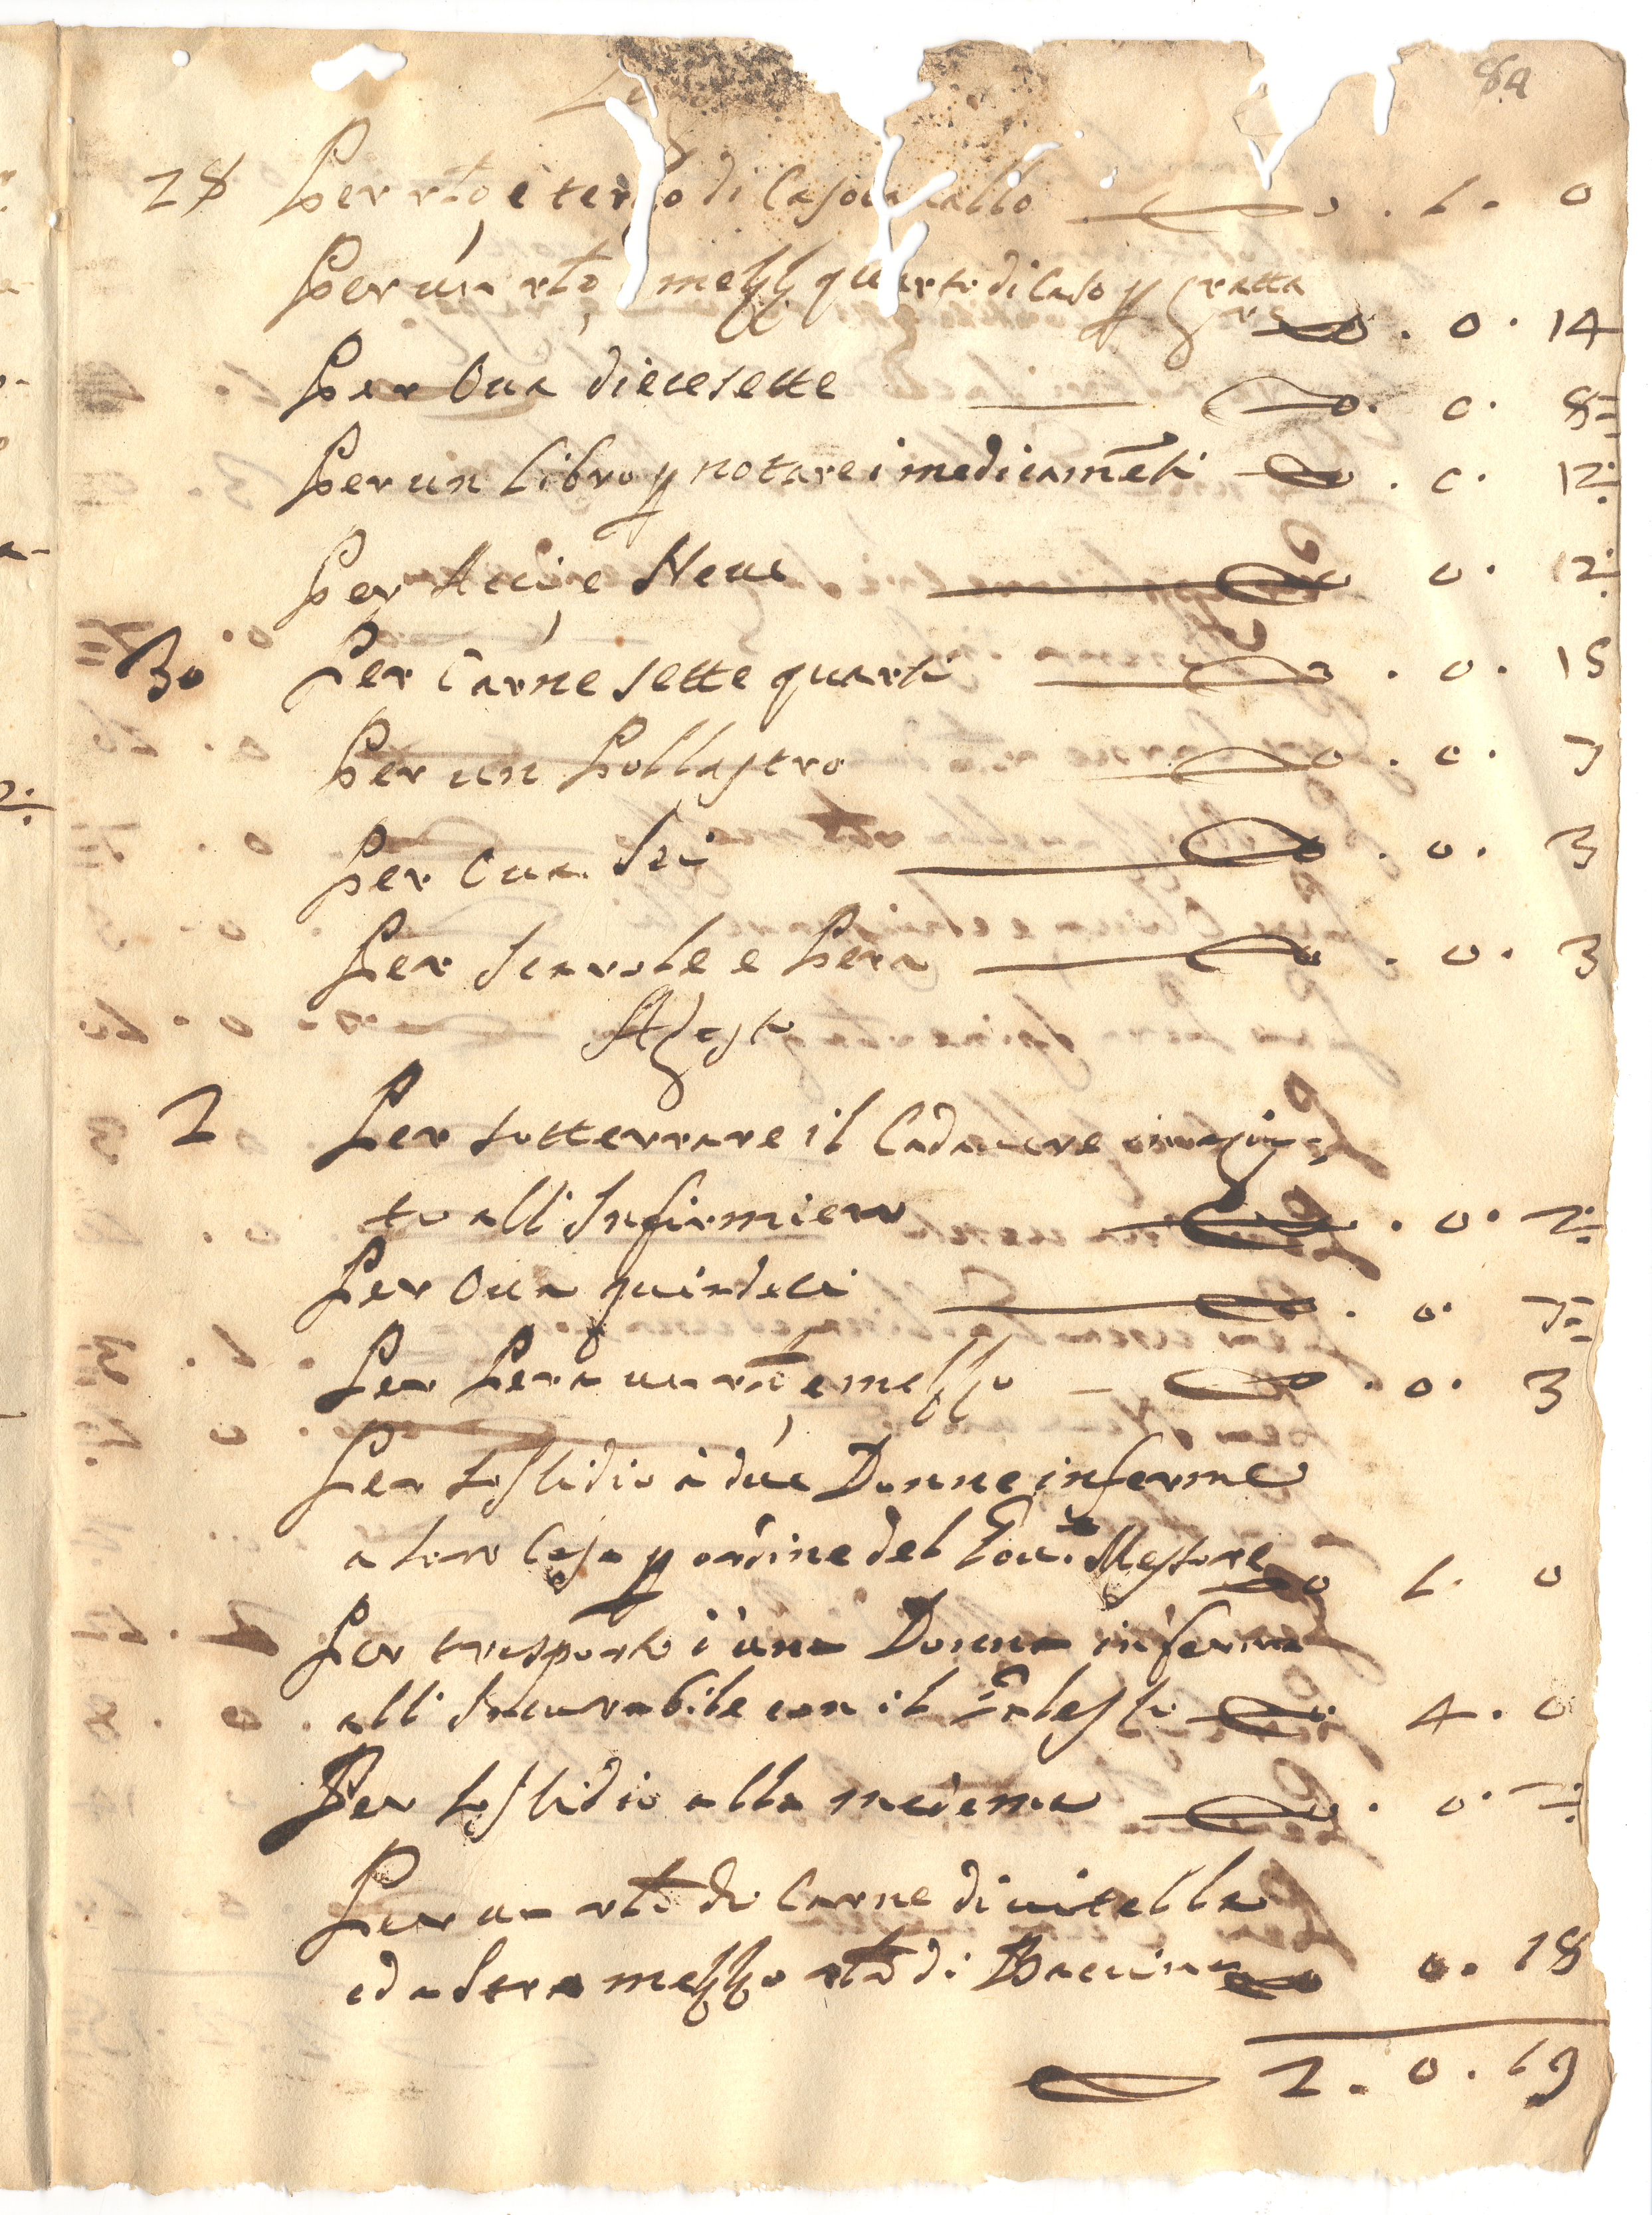 84
28 Per rto, e terzo di Casocavallo . 1 . 0
Per un rto, mezzo quarto di Caso p gratta
re . 0 . 14
Per Ova diecesette . 0 . 8=
Per un libro p notare i medicamēti . 0 . 12:
Per Accie Neve 0 . 12:
30 Per Carne sette quarti . 0 . 15
Per un Pollastro . 0 . 7
Per Ova Sei . 0 . 3
Per Scarole e Pera . 0 . 3
Agosto
2 Per sotterrare il Cadavere
to all' Infirmiero . 0 . 2:
Per Ova quindeci . 0 . 7=
Per Pera un rto, e mezzo . 0 . 3
Per sossidio à due Donne inferme
a loro Casa p ordine del Gov.r Mastore 1 . 0
Per trasporto d'una Donna inferma
all' Incurabile con il Galesso 4 . 0
Per sossidio alla medema . 0 .
Per un rto di Carne di vitella
ed a sera mezzo rto di Baccina 0 . 18
2 . 0 . 19